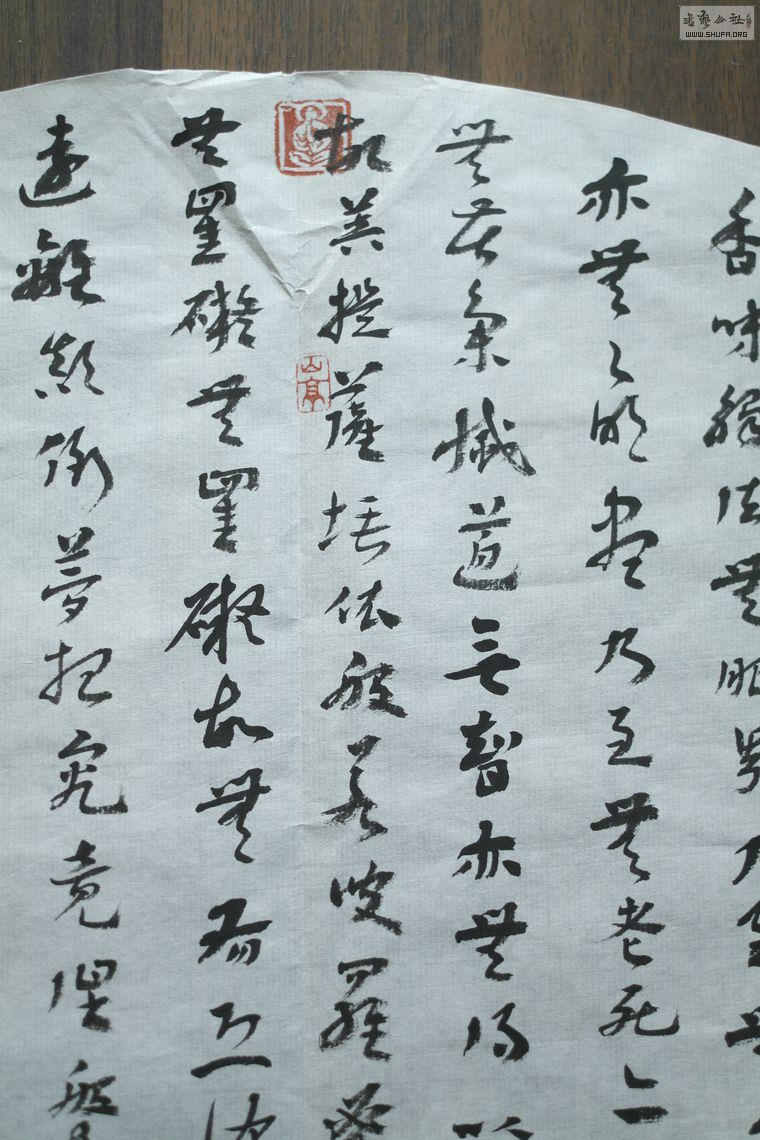 香味觸法無眼界乃至無
亦無々明盡乃至無老死亦
無苦集滅道無智亦無得以
故菩提薩埵依般若波羅蜜
無罣礙無罣礙故無有恐怖
遠離顛倒夢想究竟涅槃
書藝公社
WWW.SHUFA.ORG